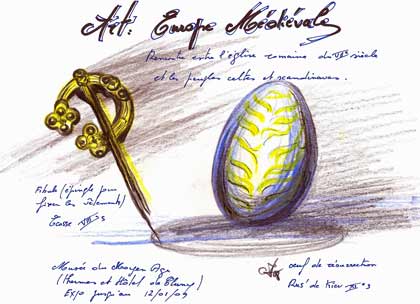 Art: Europe Médiévale
Rencontre entre l'église romaine du VIIè siècle
et les peuples celtes et scandinaves.
Fibule (épingle pour
fixer les vêtements)
Ecosse VIII° S
Musée du Moyen Age
(Thermes et Hôtel de Cluny)
Expo jusqu'au 12/01/09
oeuf de résurrection
de Kiev XI° S